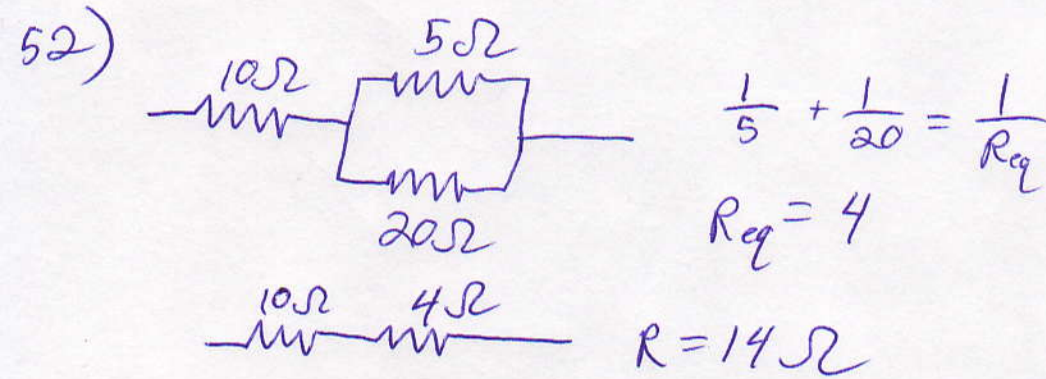 52)
10Ω 5Ω
20Ω
1/5 + 1/20 = 1/Req
Req = 4
10Ω 4Ω
R = 14 Ω